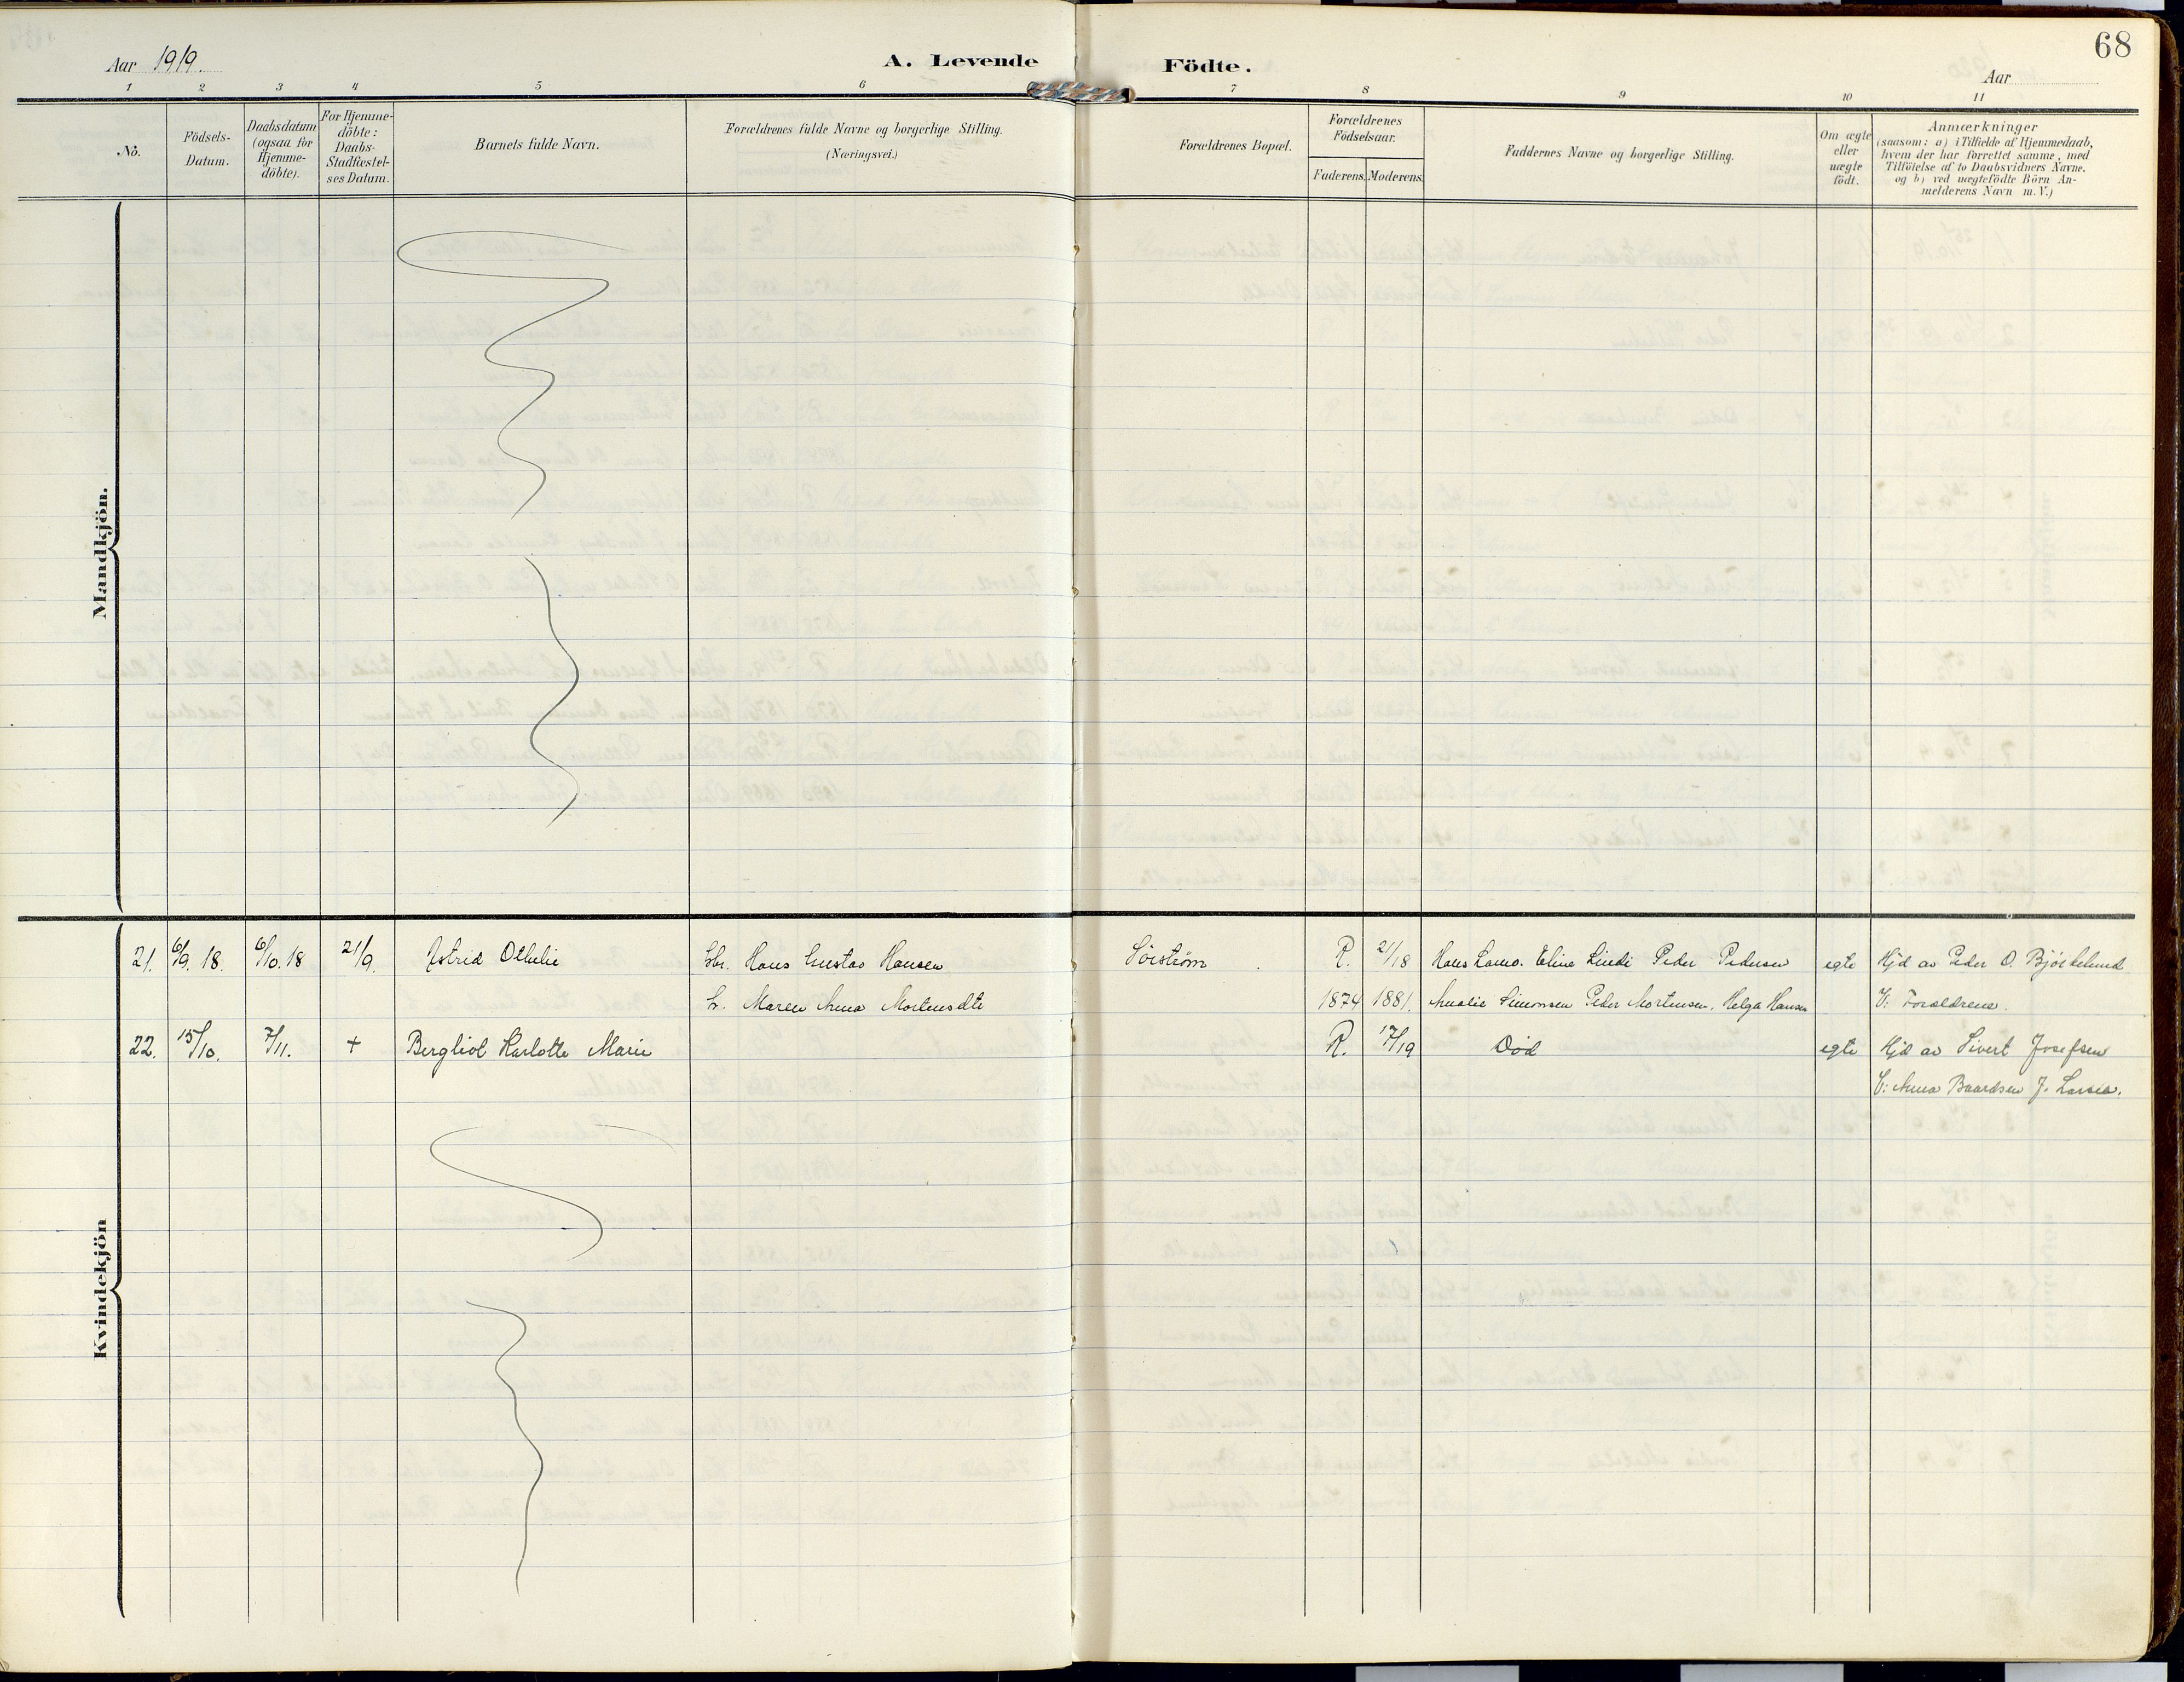 68
Aar 1919.
A. Levende Födte.
Aar
1 2 3 4 5 6 7 8 9 10 11
No.
Födsels-
Datum.
Daabsdatum
(ogsaa for
Hjemme-
döbte).
For Hjemme-
döbte:
Daabs-
Stadfæstel-
ses Datum.
Barnets fulde Navn.
Forældrenes fulde Navne og borgerlige Stilling.
(Næringsvei.)
Forældrenes Bopæl.
Forældrenes
Födselsaar.
Faderens. Moderens.
Faddernes Navne og borgerlige Stilling.
Om ægte
eller
uægte
födt.
Anmærkninger
(saasom: a) i Tilfælde af Hjemmedaab,
hvem der har forrettet samme, med
Tilföielse af to Daabsvidners Navne.
og b) ved uægtefödte Börn An-
melderens Navn m. V.)
Mandkjön.
Kvindekjön
21. 6/9. 18. 6/10. 18 21/9. Astrid Othilie Gbr. Hans Gustav Hansen Sörström R. 21/18 Hans Eline Peder Pedersen egte Hjd av Peder O. Björkelund
H. Maren Anna Mortensdtr 1874 1881. Amalie Simonsen Peder Mortensen. Helga Hansen V: Forældrene.
22. 15/10. 7/11. + Bergliot Harlotte Marie R. 17/19 Död egte Hjd av Sivert Josefsen
V: Anna Baardsen J. Larsen.